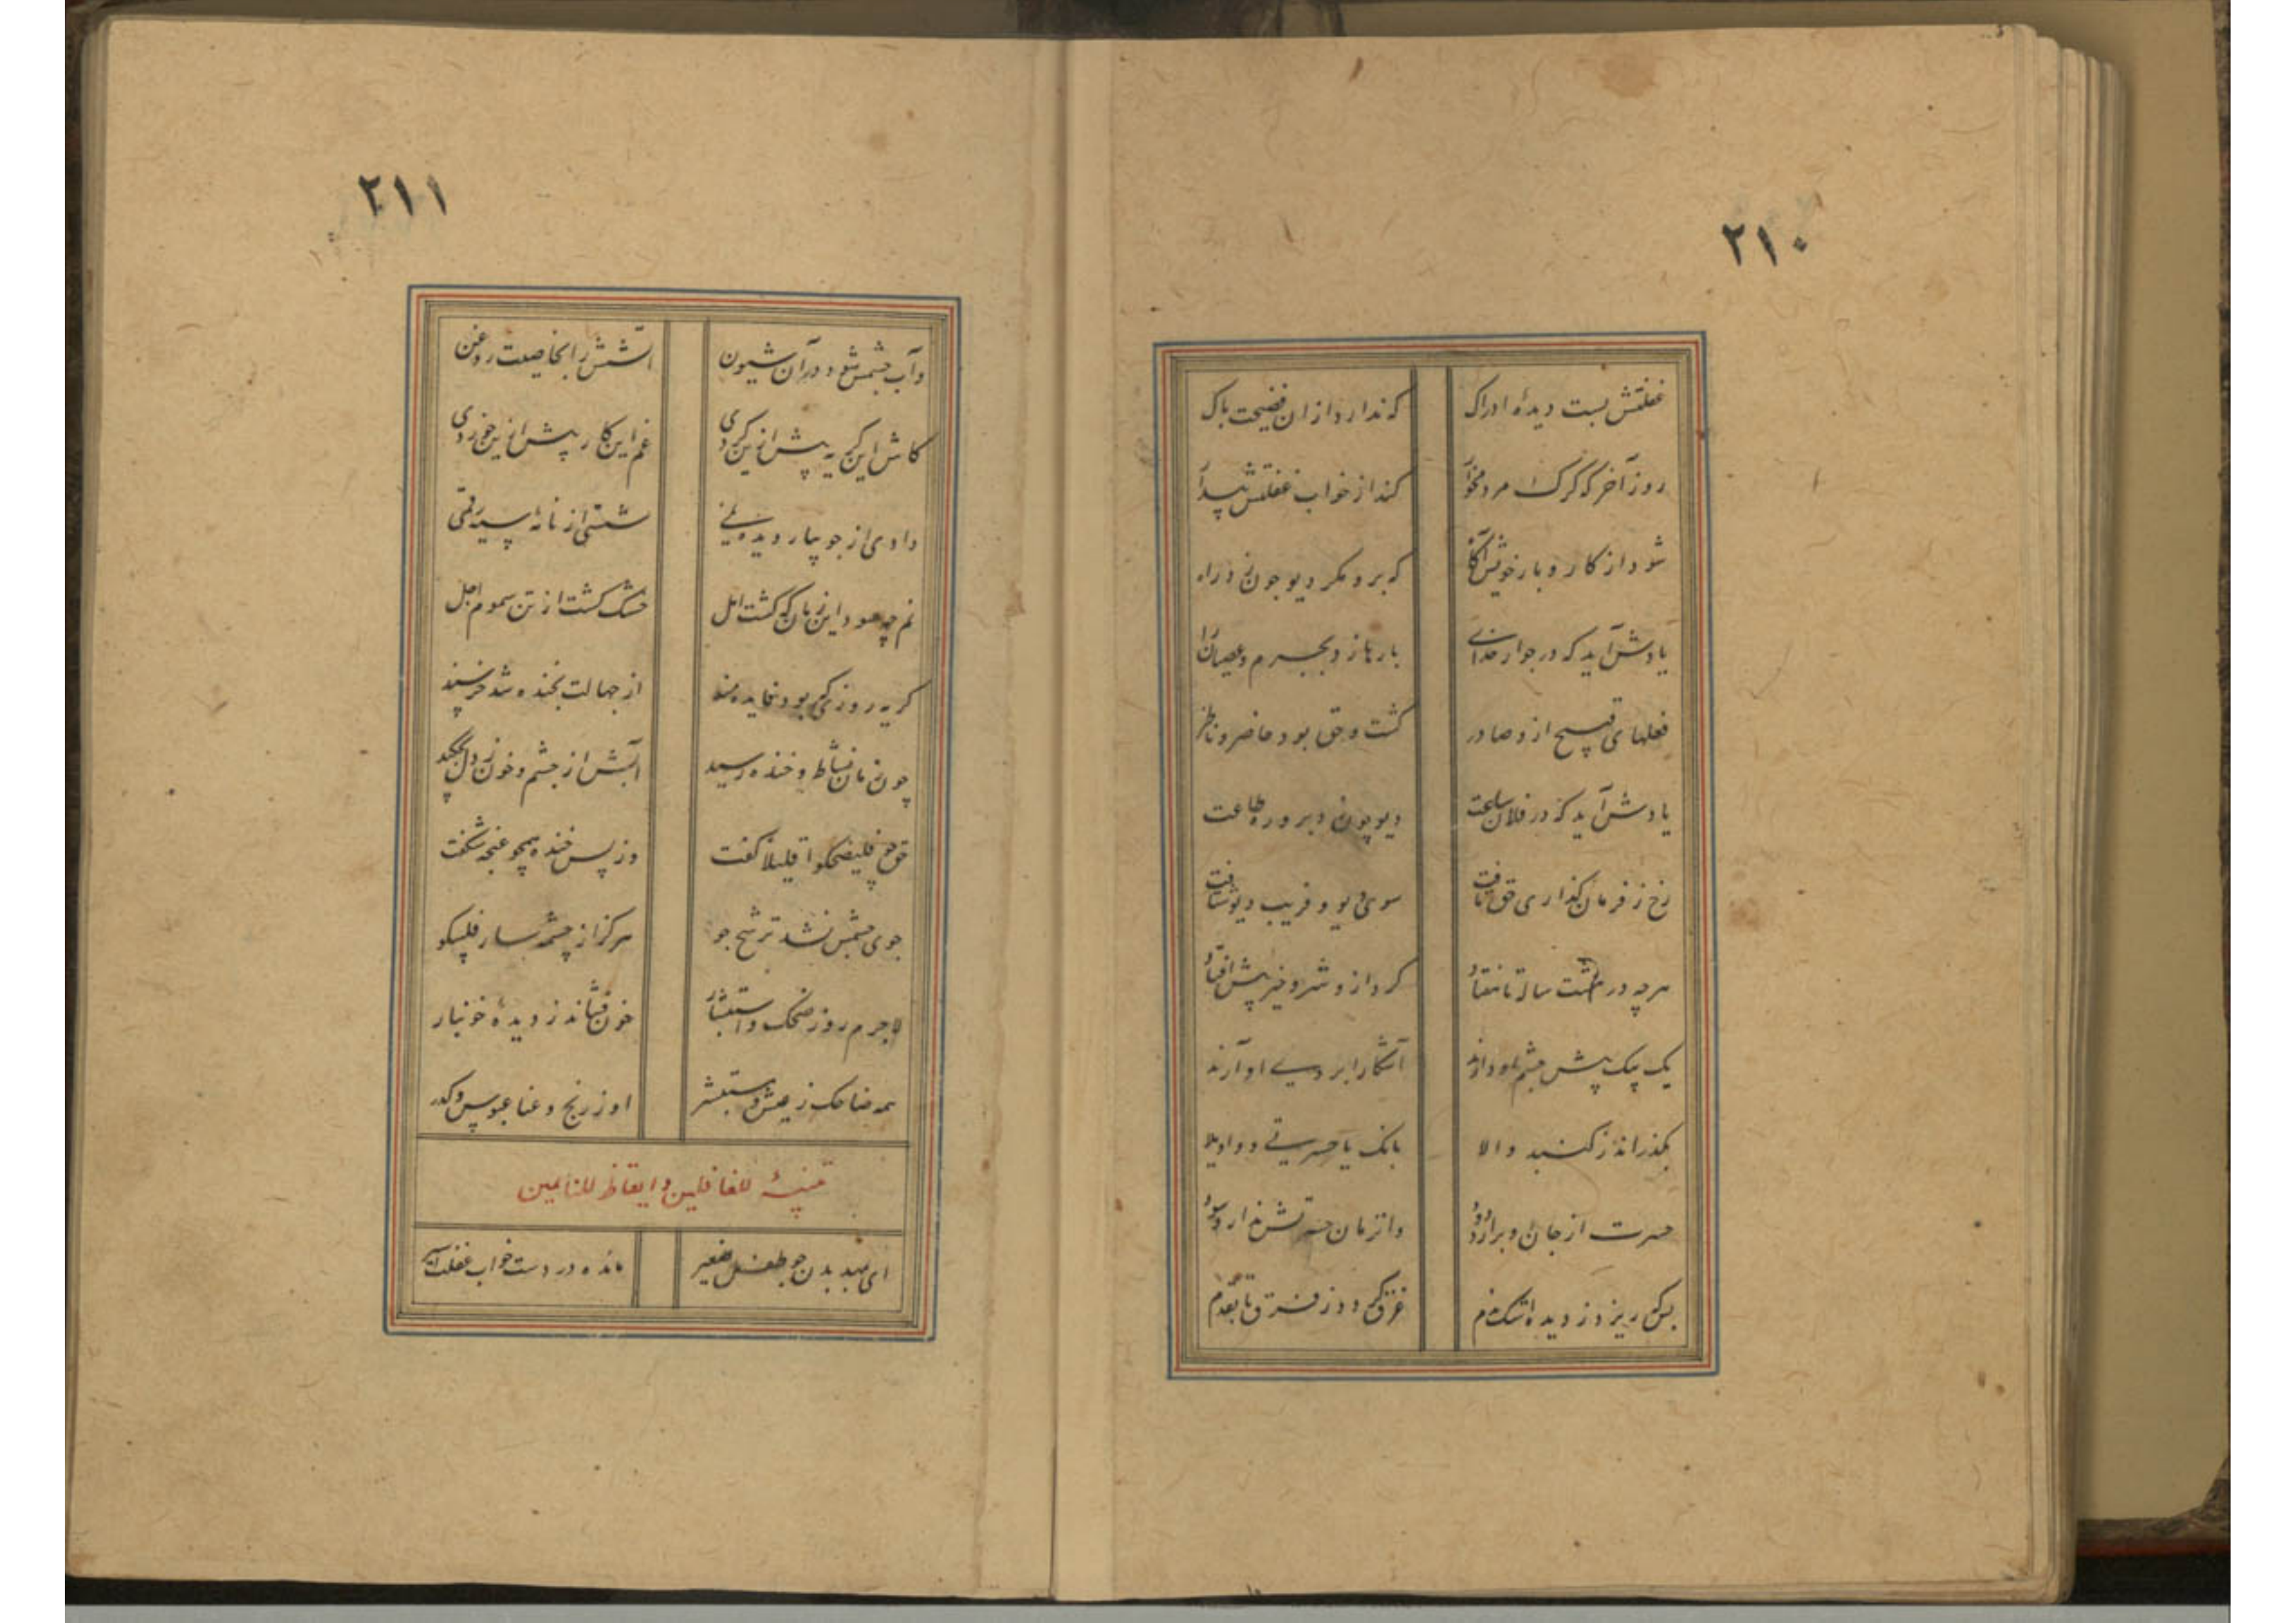 ۲۱۰
غفلتش بست دیدهٔ ادراک
که ندارد ازان فضیحت باک
روز آخر که کرک مردمخوار
کند از خواب غفلتش پیدار
شود از کار و بار خویش آکاه
که برو مکر دیو چون زد راه
یادش آید که در جوار خدای
بارها زد بجرم و عصیان رای
فعلهای قبیح ازو صادر
کشت و حق بود حاضر و ناظر
یادش آید که در فلان ساعت
دیو چون زد برو ره طاعت
رخ ز فرمان کذاری حق تافت
سوی دیو و فریب دیو شتافت
هرچه در شست سال تا هفتاد
کرد از و شر و خیر پیش افتاد
یک بیک پیش چشم او دارند
آشکارا بروی او آرند
بکذراند ز کنبد والا
بانک یا حسرتی و واویلا
حسرت از جان او برارد دود
وانزمان حسرتش ندارد سود
بسکه ریزد ز دیده اشک ندم
غرق کردد ز فرق تا بقدم
۲۱۱
وآب چشمش شود در آن شیون
آتشش را بخاصیت روغن
کاش این کریه پیش ازین کردی
غم این کار پیش ازین خوردی
دادی از جویبار دیده نمی
شستی از نامهٔ سیه رقمی
نم چه سود این زمان که کشت امل
خشک کشت از تف سموم اجل
کریه روزی که بود فایده مند
از جهالت بخنده شد خرسند
چون زمان نشاط و خنده رسید
آبش از چشم و خون ز دل بچکید
حق چو فلیضحکوا قلیلا کفت
وز پس خنده همچو غنچه شکفت
جوی چشمش نشد ترشح جو
هرکز از چشمه سار فلیبکو
لاجرم روز ضحک و استبشار
خون فشاند ز دیدهٔ خونبار
همه ضاحک ز عیش و مستبشر
او ز رنج و عنا عبوس و کدر
تنبیهٔ للغافلین و ایقاظ للنایمین
ای بمهد بدن چو طفل صغیر
مانده در دست خواب غفلت اسیر